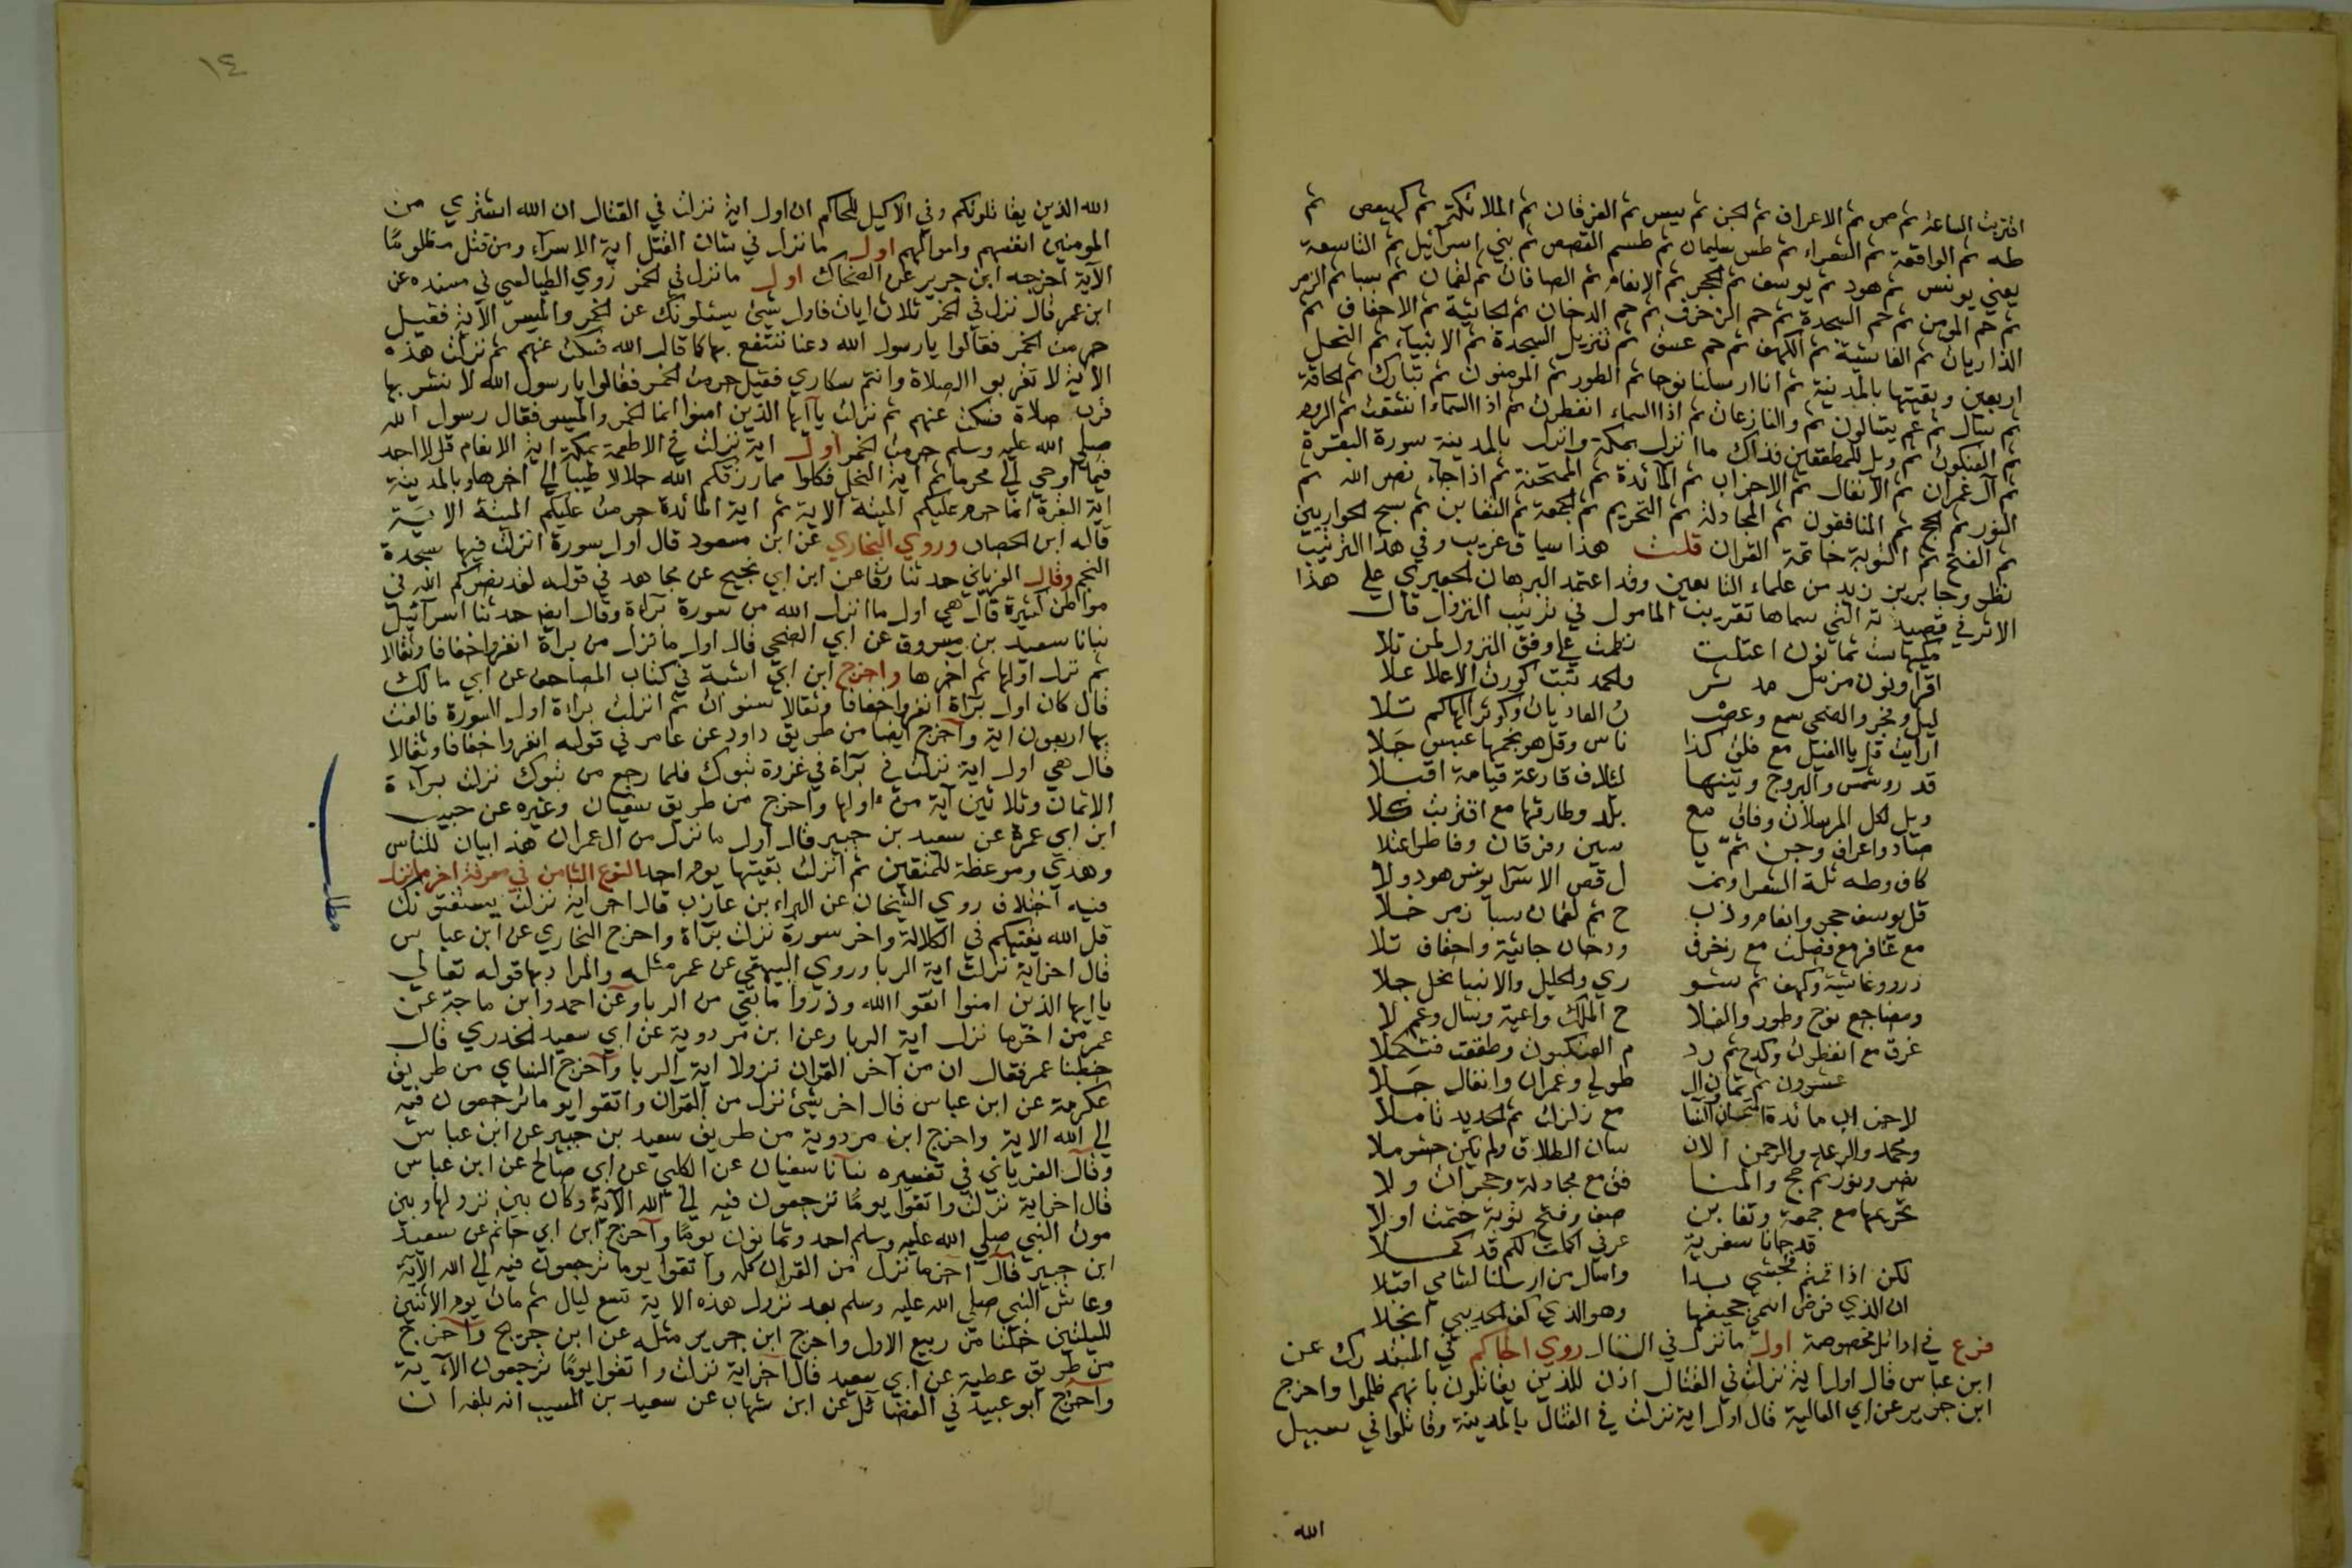 اقتربت الساعة ثم ص ثم الاعراف ثم الجن ثم يس ثم الفرقان ثم الملائكة ثم كهيعص ثم
طه ثم الواقعة ثم الشعراء ثم طس سليمان ثم طسم القصص ثم بني اسرآئيل ثم التاسعة
يعني يونس ثم هود ثم يوسف ثم الحجر ثم الانعام ثم الصافات ثم لقمان ثم سبا ثم الزمر
ثم حم المومن ثم حم السجدة ثم حم الزخرف ثم حم الدخان ثم الجاثية ثم الاحقاف ثم
الذاريات ثم الغاشية ثم الكهف ثم حم عسق ثم تنزيل السجدة ثم الانبياء ثم النحل
اربعين وبقيتها بالمدينة ثم انا ارسلنا نوحا ثم الطور ثم المومنون ثم تبارك ثم الحاقة
ثم سال ثم عم يتسالون ثم والنازعات ثم اذا السماء انفطرت ثم اذا السماء انشقت ثم الروم
ثم العنكبوت ثم ويل للمطففين فذاك ما انزل بمكة وانزل بالمدينة سورة البقرة
ثم آل عمران ثم الانفال ثم الاحزاب ثم المائدة ثم الممتحنة ثم اذا جاء نصر الله ثم
النور ثم الحج ثم المنافقون ثم المجادلة ثم التحريم ثم الجمعة ثم التغابن ثم سبح الحواريين
ثم الفتح ثم التوبة خاتمة القران قلت هذا سياق غريب وفي هذا الترتيب
نظر وجابر بن زيد من علماء التابعين وقد اعتمد البرهان الجعبري علي هذا
الاثر في قصيدته التي سماها تقريب المامول في ترتيب النزول قال
مكيها ست ثمانون اعتلت نظمت علي وفق النزول لمن تلا
اقرا ونون مزمل مدثر والحمد تبت كورت الاعلا علا
ليل وفجر والضحي شرح وعصر ن العاديات وكوثر الهاكم تلا
ارايت قل يا الفيل مع فلق كذا ناس وقل هو نجمها عبس جلا
قدر وشمس والبروج وتينها لئلاف قارعة قيامة اقبلا
ويل لكل المرسلات وقاف مع بلد وطارقها مع اقتربت كلا
صاد واعراف وجن ثم يا سين وفرقان وفاطر اعتلا
كاف وطه ثلة الشعرا ونمـ ل قص الاسرا يونس هود ولا
قل يوسف حجر وانعام وذبـ ح ثم لقمان سبا زمر خلا
مع غافر مع فصلت مع زخرف ودخان جاثية واحقاف تلا
ذرو وغاشية وكهف ثم شو ري والخليل والانبيا نحل جلا
ومضاجع نوح وطور والفلا ح الملك واعية وسال وعم لا
غرق مع انفطرت وكدح ثم رو م العنكبوت وطففت فتكملا
عشرون ثم ثمان ال طولي وعمران وانفال جلا
لاحزاب مائدة امتحان والنسا مع زلزلت ثم الحديد تاملا
ومحمد والرعد والرحمن الان سان الطلاق ولم يكن حشر ملا
نصر ونور ثم حج والمنا فق مع مجادلة وحجرات ولا
تحريمها مع جمعة وتغابن صف وفتح توبة ختمت اولا
قد جانا سفرية عرفي اكملت لكم قد كملا
لكن اذا قمتم فجبشي بدا واسال من ارسلنا لشامي اقبلا
ان الذي فرض انتمي جحفيها وهو الذي كف الحديبي انجلا
فرع في اوائل مخصوصة اول ما نزل في القتال روي الحاكم في المستدرك عن
ابن عباس قال اول اية نزلت في القتال اذن للذين يقاتلون بانهم ظلموا واخرج
ابن جرير عن ابي العالية قال اول اية نزلت في القتال بالمدينة وقاتلوا في سبيل
الله
١٤
الله الذين يقاتلونكم وفي الاكليل للحاكم ان اول اية نزلت في القتال ان الله اشتري من
المومنين انفسهم واموالهم اول ما نزل في شان القتل اية الاسرآء ومن قتل مظلوما
الآية اخرجه ابن جرير عن الضحاك اول ما نزل في الخمر روي الطيالسي في مسنده عن
ابن عمر قال نزل في الخمر ثلاث ايات فاول شئ يسئلونك عن الخمر والميسر الآية فقيل
حرمت الخمر فقالوا يا رسول الله دعنا ننتفع بها كما قال الله فسكت عنهم ثم نزلت هذه
الآية لا تقربوا الصلاة وانتم سكاري فقيل حرمت الخمر فقالوا يا رسول الله لا نشربها
قرب صلاة فسكت عنهم ثم نزلت يا ايها الذين امنوا انما الخمر والميسر فقال رسول الله
صلي الله عليه وسلم حرمت الخمر اول اية نزلت في الاطعمة بمكة اية الانعام قل لا اجد
فيما اوحي الي محرما ثم اية النحل فكلوا مما رزقكم الله حلالا طيبا الي اخرها وبالمدينة
اية البقرة انما حرم عليكم الميتة الآية ثم اية المائدة حرمت عليكم الميتة الاية
قاله ابن الحصار وروي البخاري عن ابن مسعود قال اول سورة انزلت فيها سجدة
النجم وقال الفريابي حدثنا ورقا عن ابن ابي نجيح عن مجاهد في قوله لقد نصركم الله في
مواطن كثيرة قال هي اول ما انزل الله من سورة برآءة وقال ايضا حدثنا اسرآئيل
نبانا سعيد بن مسروق عن ابي الضحي قال اول ما نزل من براة انفروا خفافا وثقالا
ثم نزل اولها ثم اخرها واخرج ابن ابي اشتة في كتاب المصاحف عن ابي مالك
قال كان اول برآة انفروا خفافا وثقالا سنوات ثم انزلت براءة اول السورة فالفت
بها اربعون اية وآخرج ايضا من طريق داود عن عامر في قوله انفروا خفافا وثقالا
قال هي اول اية نزلت في برآة في غزوة تبوك فلما رجع من تبوك نزلت برآءة
الا ثمان وثلاثين آية من اولها واخرج من طريق سفيان وغيره عن حبيب
ابن ابي عمرة عن سعيد بن جبير قال اول ما نزل من ال عمران هذا بيان للناس
وهدي وموعظة للمتقين ثم انزلت بقيتها يوم احد النوع الثامن في معرفة اخر ما نزل
فيه اختلاف روي الشيخان عن البراء بن عازب قال اخر اية نزلت يستفتونك
قل الله يفتيكم في الكلالة واخر سورة نزلت برآة واخرج البخاري عن ابن عباس
قال اخر اية نزلت اية الربا وروي البيهقي عن عمر مثله والمراد بها قوله تعالي
يا ايها الذين امنوا اتقوا الله وذروا ما بقي من الربا وعن احمد وابن ماجة عن
عمر من اخر ما نزل اية الربا وعن ابن مردوية عن ابي سعيد الخدري قال
خطبنا عمر فقال ان من آخر القران نزولا اية الربا وآخرج النساي من طريق
عكرمة عن ابن عباس قال اخر شئ نزل من القرآن واتقوا يوما ترجعون فيه
الي الله الاية واخرج ابن مردوية من طريق سعيد بن جبير عن ابن عباس
وقال الفريابي في تفسيره نبانا سفيان عن الكلبي عن ابي صالح عن ابن عباس
قال اخر اية نزلت واتقوا يوما ترجعون فيه الي الله الآية وكان بين نزولها وبين
موت النبي صلي الله عليه وسلم احد وثمانون يوما وآخرج ابن ابي حاتم عن سعيد
ابن جبير قال اخر ما نزل من القران كله واتقوا يوما ترجعون فيه الي الله الآية
وعاش النبي صلي الله عليه وسلم بعد نزول هذه الاية تسع ليال ثم مات يوم الاثنين
لليلتين خلتا من ربيع الاول واخرج ابن جرير مثله عن ابن جريج وآخرج
من طريق عطية عن ابي سعيد قال آخر اية نزلت واتقوا يوما ترجعون الآية
وآخرج ابو عبيد في الفضائل عن ابن شهاب عن سعيد بن المسيب انه بلغه ان
مطلب